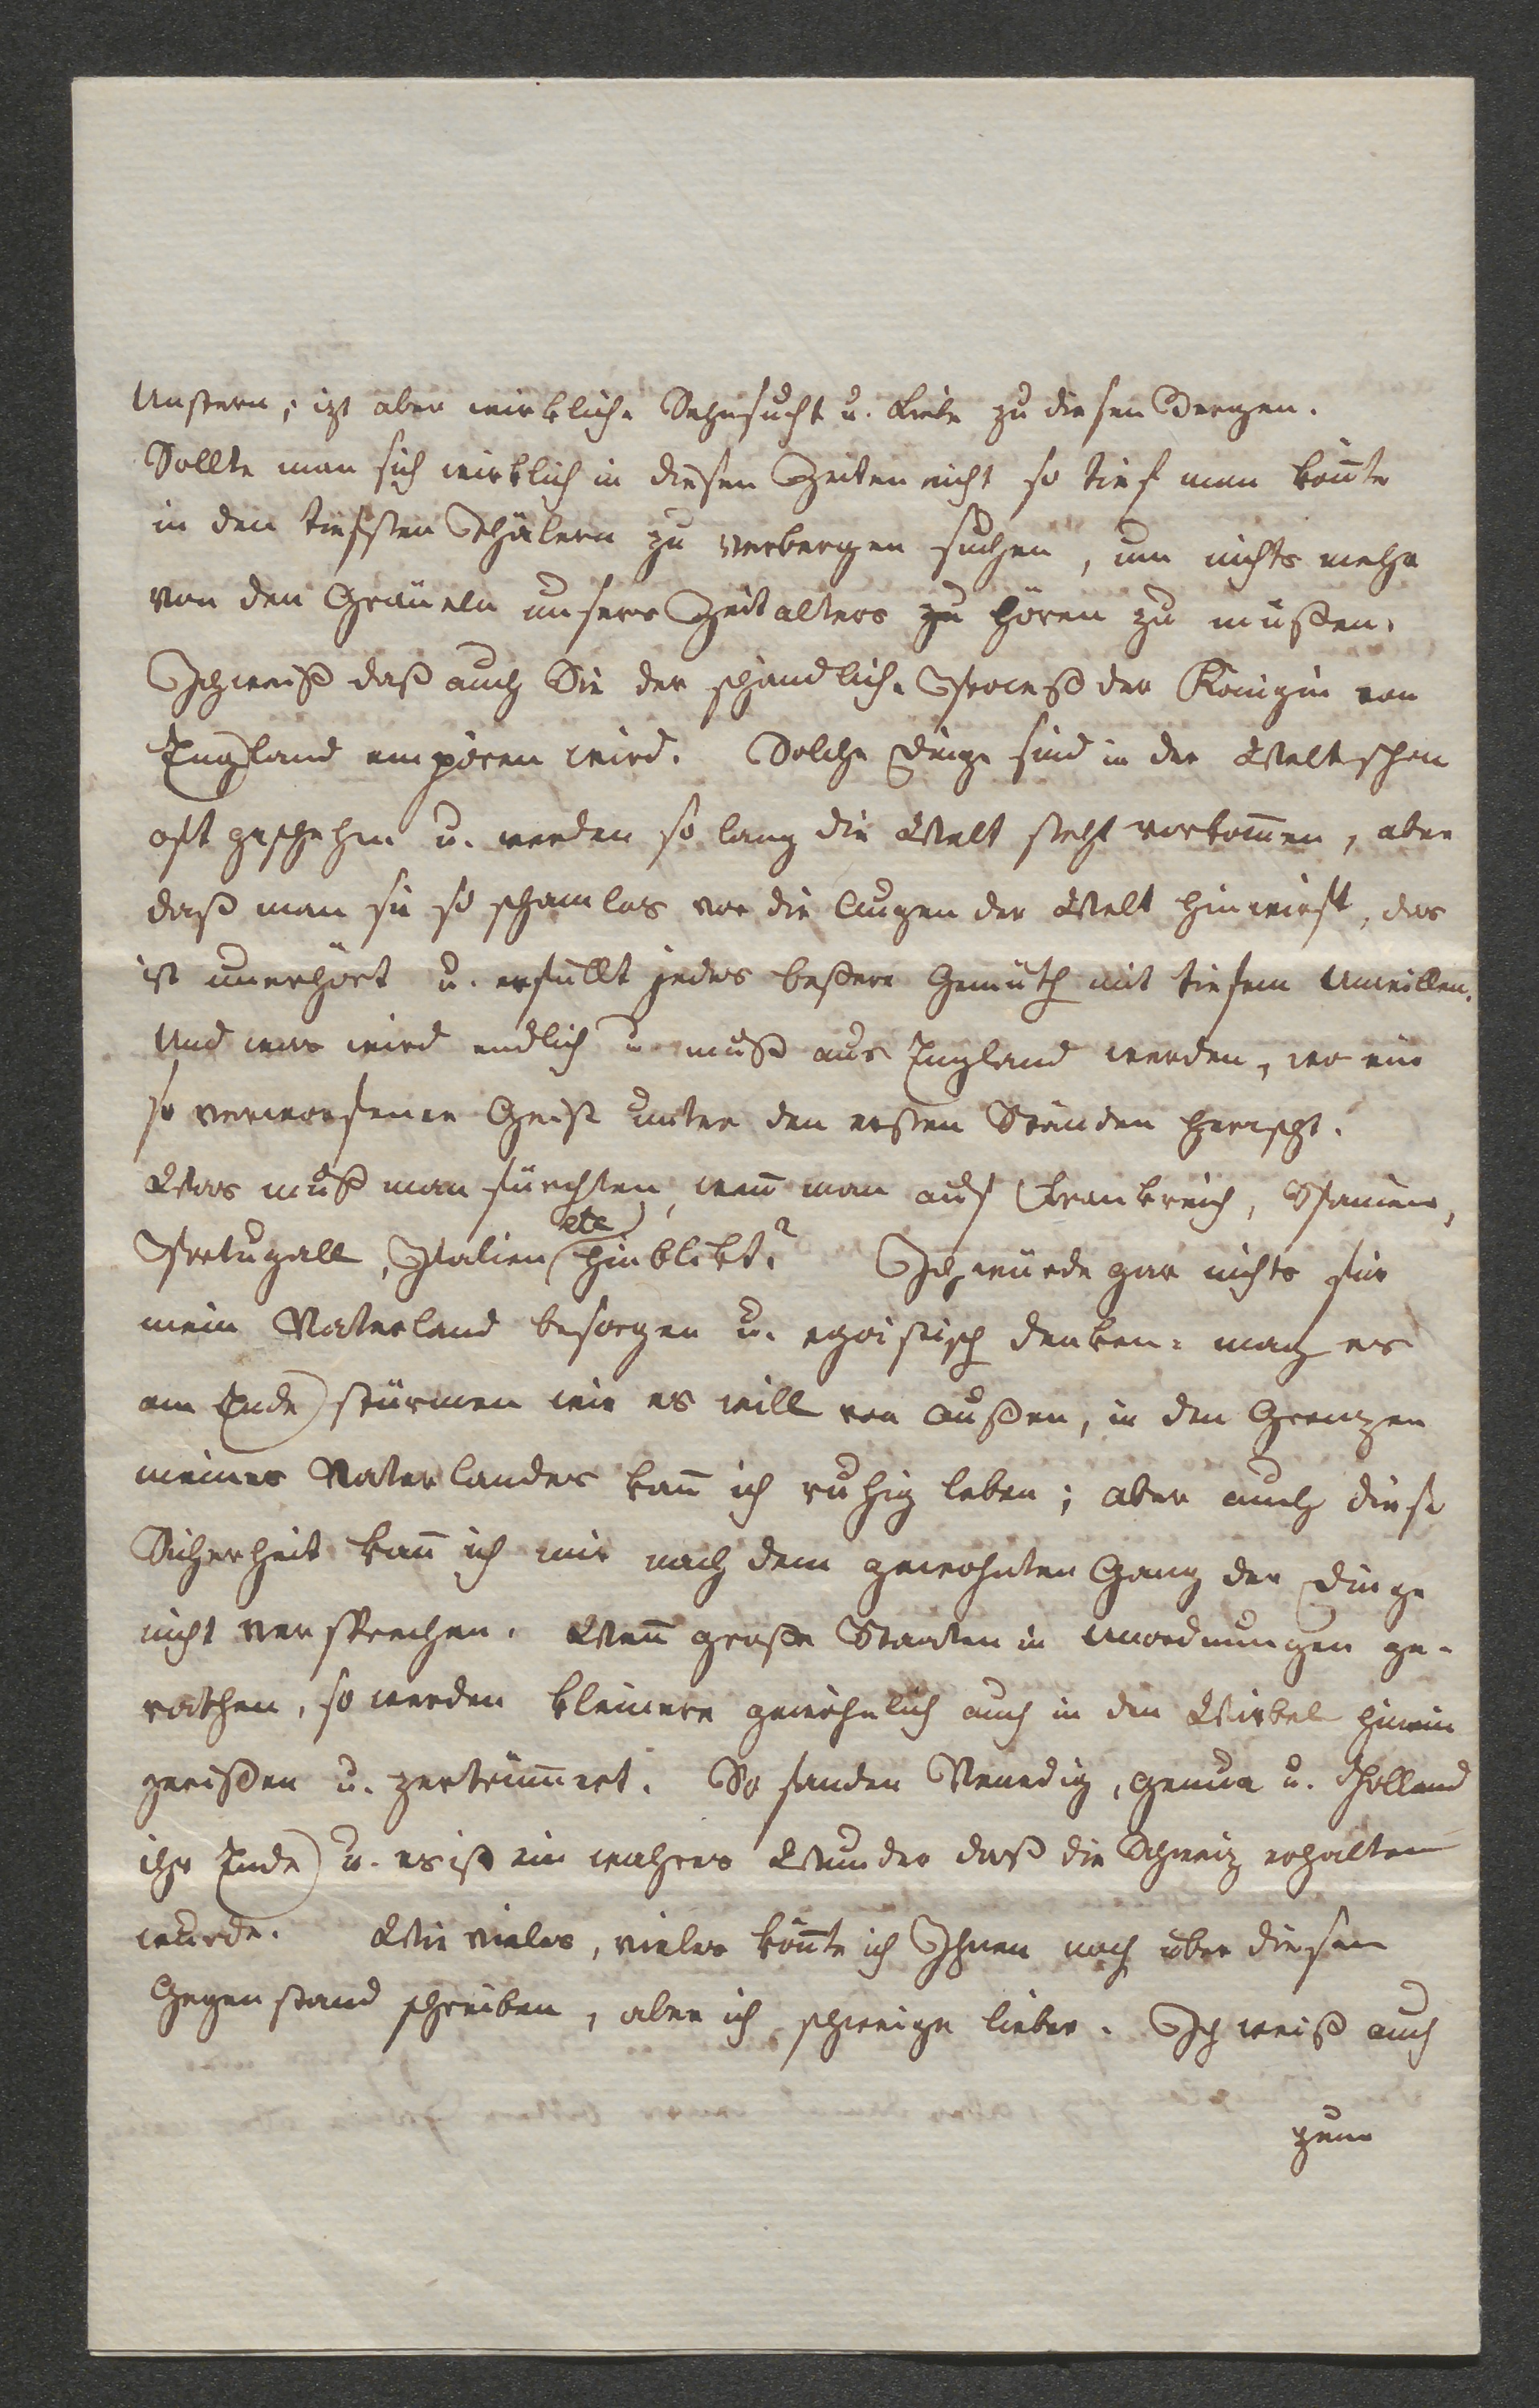 Unstern; izt aber wirkliche Sehnsucht u. Liebe zu diesen Bergen.
Sollte man sich wirklich in diesen Zeiten nicht so tief man kon̄te
in den tiefsten Thälern zu verbergen suchen, um nichts mehr
von den Gräueln unsers Zeitalters zu hören zu müßen.
Ich weiß daß auch Sie der schändliche Proceß der Königin von
England empören wird. Solche Dinge sind in der Welt schon
oft geschehen u. werden so lang die Welt steht vorkom̄en, aber
daß man sie so schamlos vor die Augen der Welt hinwirft, das
ist unerhört u. erfüllt jedes beßere Gemüth mit tiefem Unwillen.
Und was wird endlich u. muß aus England werden, wo ein
so verworfener Geist unter den ersten Ständen herrscht.
Was muß man fürchten, wen̄ man auf Frankreich, Spanien,
Portugall, Italien etc hinblikt? Ich würde gar nichts für
mein Vaterland besorgen u. egoistisch denken: mag es
am Ende stürmen wie es will von außen, in den Grenzen
meines Vaterlandes kan̄ ich ruhig leben; aber auch diese
Sicherheit kan̄ ich mir nach dem gewohnten Gang der Dinge
nicht versprechen. Wen̄ große Staaten in Unordnungen ge-
rathen, so werden kleinere gewöhnlich auch in den Wirbel hinein
gerißen u. zertrüm̄ert. So fanden Venedig, Genua u. Holland
ihr Ende u. es ist ein wahres Wunder daß die Schweiz erhalten
wurde. Wie vieles, vieles kön̄te ich Ihnen noch über diesen
Gegenstand schreiben, aber ich schweige lieber. Ich weiß auch
zum